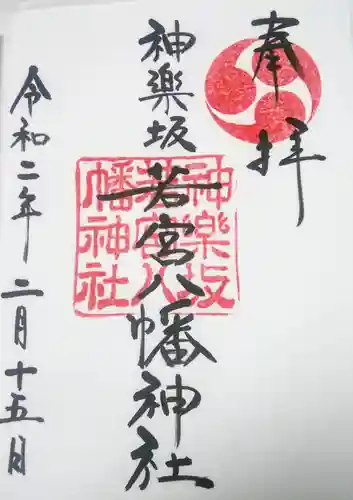 奉拝
神楽坂
若宮八幡神社
令和二年 二月十五日
神楽坂
若宮八
幡神社